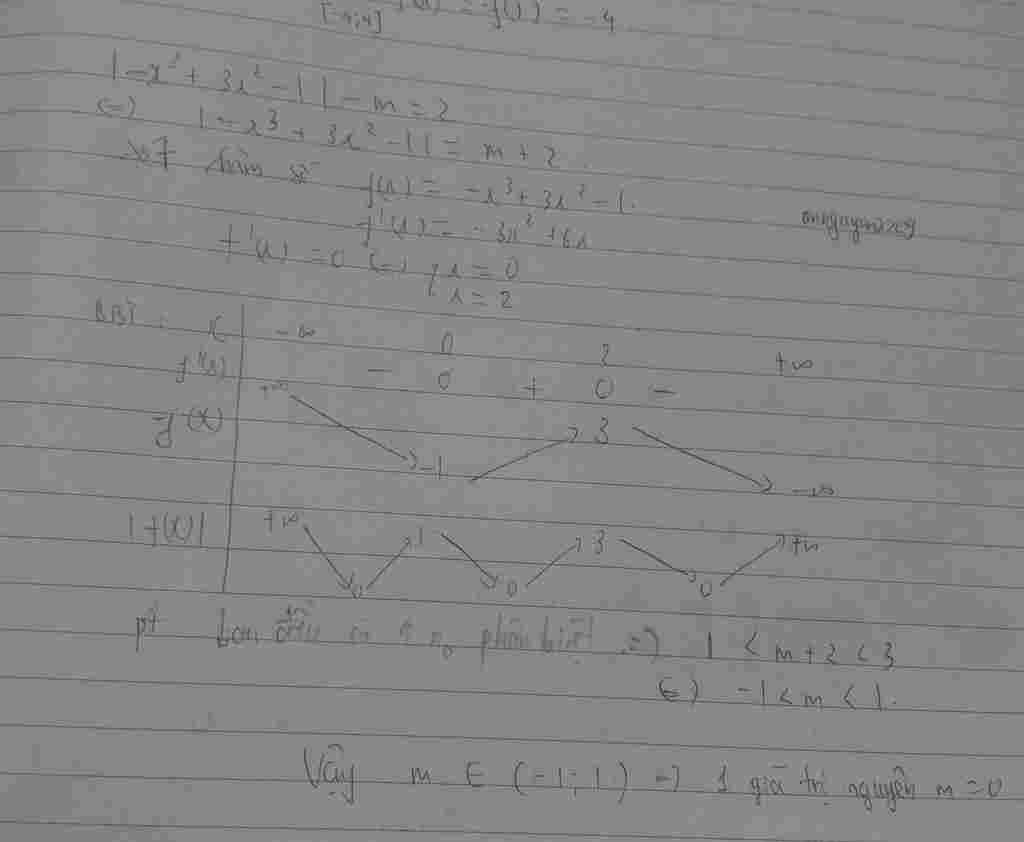 [-4;4] f(x) = f(1) = -4
|-x³ + 3x² - 1| - m = 2
(=) |-x³ + 3x² - 1| = m + 2
Xét hàm số f(x) = -x³ + 3x² - 1.
f'(x) = -3x² + 6x
annguyen2k9
f'(x) = 0 (=) x = 0
x = 2
BBT: x -∞ 0 2 +∞
f'(x) - 0 + 0 -
f(x) +∞ -1 3 -∞
|f(x)| +∞ 0 1 0 3 0 +∞
pt ban đầu có 4 n₀ phân biệt => 1 < m + 2 < 3
(=) -1 < m < 1.
Vậy m ∈ (-1; 1) => 1 giá trị nguyên m = 0